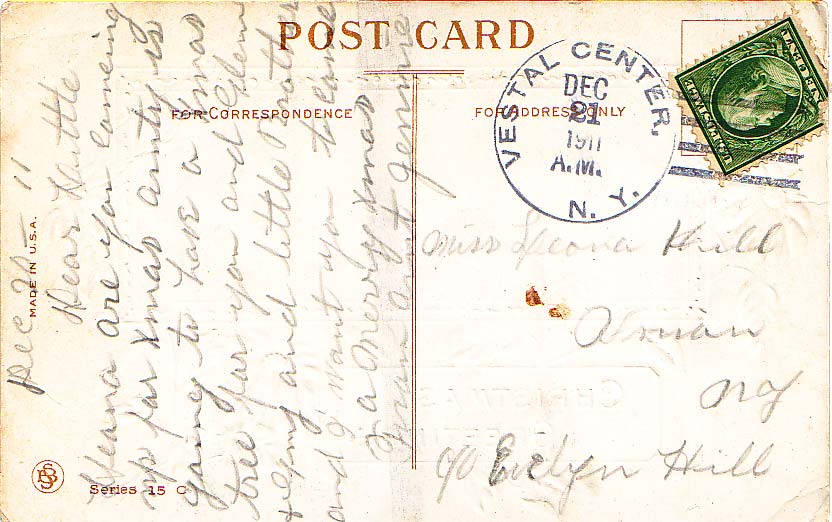 POST CARD
FOR CORRESPONDENCE
FOR ADDRESS ONLY
VESTAL CENTER, N.Y.
DEC
21
1911
A.M.
Dec 20 - 11
Dear Little
Leona are you comeing
up for Xmas aunty is
going to have a Xmas
tree for you and Glenn
and little Brother
and I want you to come
a Merry Xmas
From Aunt Jennie
Miss Leona Hill
NY
c/o Evelyn Hill
MADE IN U.S.A.
Series 15 C
CHRISTMAS
GREETINGS